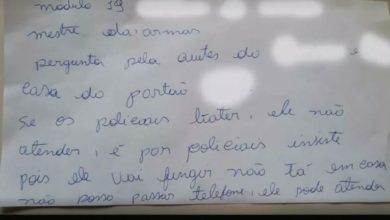 modulo 19
mestre das armas
pergunta pela antes do e
casa do portão
Se os policiais bater, ele não
atender, é por policiais insiste
pois ele vai fingir não tá em casa
não posso passar telefone, ele pode atender